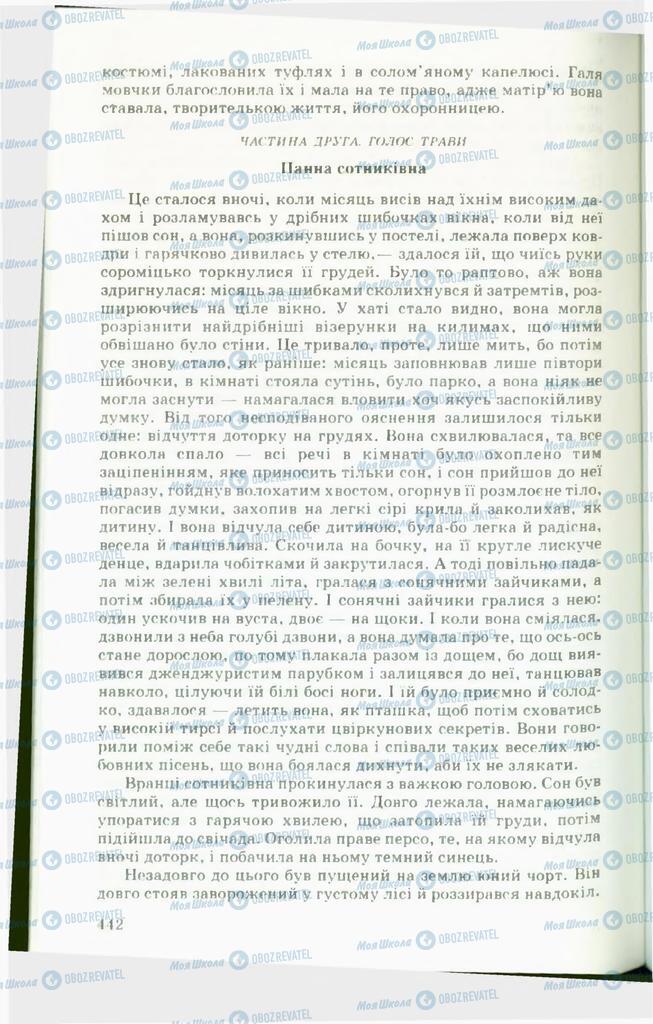 костюмі, лакованих туфлях і в солом’яному капелюсі. Галя
мовчки благословила їх і мала на те право, адже матір’ю вона
ставала, творителькою життя, його охоронницею.
ЧАСТИНА ДРУГА. ГОЛОС ТРАВИ
Панна сотниківна
Це сталося вночі, коли місяць висів над їхнім високим да-
хом і розламувавсь у дрібних шибочках вікна, коли від неї
пішов сон, а вона, розкинувшись у постелі, лежала поверх ков-
дри і гарячково дивилась у стелю,— здалося їй, що чиїсь руки
сороміцько торкнулися її грудей. Було то раптово, аж вона
здригнулася: місяць за шибками сколихнувся й затремтів, роз-
ширюючись на ціле вікно. У хаті стало видно, вона могла
розрізнити найдрібніші візерунки на килимах, що ними
обвішано було стіни. Це тривало, проте, лише мить, бо потім
усе знову стало, як раніше: місяць заповнював лише півтори
шибочки, в кімнаті стояла сутінь, було парко, а вона ніяк не
могла заснути — намагалася вловити хоч якусь заспокійливу
думку. Від того несподіваного ояснення залишилося тільки
одне: відчуття доторку на грудях. Вона схвилювалася, та все
довкола спало — всі речі в кімнаті було охоплено тим
заціпенінням, яке приносить тільки сон, і сон прийшов до неї
відразу, гойднув волохатим хвостом, огорнув її розмлоєне тіло,
погасив думки, захопив на легкі сірі крила й заколихав, як
дитину. І вона відчула себе дитиною, була-бо легка й радісна,
весела й танцівлива. Скочила на бочку, на її кругле лискуче
денце, вдарила чобітками й закрутилася. А тоді повільно пада-
ла між зелені хвилі літа, гралася з сонячними зайчиками, а
потім збирала їх у пелену. І сонячні зайчики гралися з нею:
один ускочив на вуста, двоє — на щоки. І коли вона сміялася,
дзвонили з неба голубі дзвони, а вона думала про те, що ось-ось
стане дорослою, по тому плакала разом із дощем, бо дощ вия-
вився дженджуристим парубком і залицявся до неї, танцював
навколо, цілуючи їй білі босі ноги. І їй було приємно й солод-
ко, здавалося — летить вона, як пташка, щоб потім сховатись
у високій тирсі й послухати цвіркунових секретів. Вони гово-
рили поміж себе такі чудні слова і співали таких веселих лю-
бовних пісень, що вона боялася дихнути, аби їх не злякати.
Вранці сотниківна прокинулася з важкою головою. Сон був
світлий, але щось тривожило її. Довго лежала, намагаючись
упоратися з гарячою хвилею, що затопила їй груди, потім
підійшла до свічада. Оголила праве персо, те, на якому відчула
вночі доторк, і побачила на ньому темний синець.
Незадовго до цього був пущений на землю юний чорт. Він
довго стояв заворожений у густому лісі й роззирався навдокіл.
442